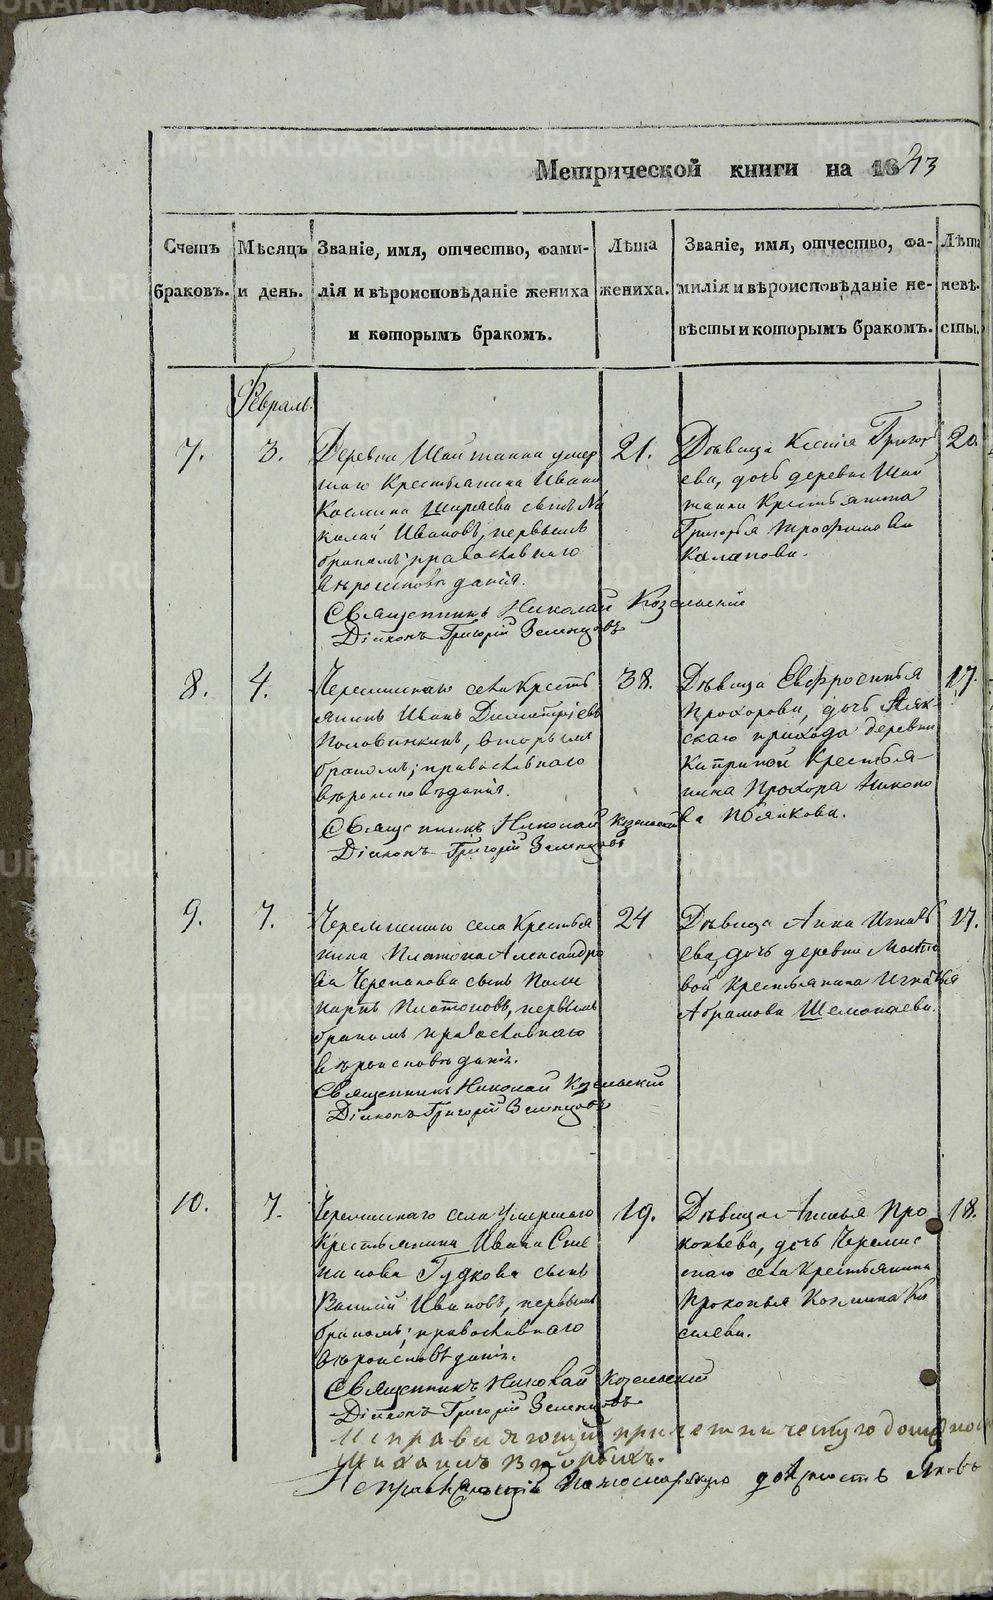 Метрической книги на 1843
Счетъ браковъ.
Мѣсяцъ и день.
Званіе, имя, отчество, фами-
лія и вѣроисповѣданіе жениха
и которымъ бракомъ.
Лѣта
жениха.
Званіе, имя, отчество, фа-
милія и вѣроисповѣданіе не-
вѣсты и которымъ бракомъ.
Лѣта
невѣ-
сты.
Февраль.
7.
3.
Деревни Шайтанки умер
шаго Крестьянина Ивана
Козмина сынъ Ни
колай Ивановъ, первымъ
бракомъ, православнаго
вѣроисповѣданія.
Священникъ Николай Козельскій
Діаконъ Григорій Зеленцовъ
21.
Дѣвица Ксенія Григорь
ева, дочь деревни Шай
танки Крестьянина
Григорья Трофимова
20.
8.
4.
Черемискаго села Кресть
янинъ Иванъ Димитріевъ
Половинкинъ, вторымъ
бракомъ; православнаго
вѣроисповѣданія.
Священникъ Николай Козельскій
Діаконъ Григорій Зеленцовъ
38.
Дѣвица Евфросинья
Прохорова, дочь
скаго прихода деревни
Крестья-
нина Прохора
17.
9.
7.
Черемискаго села Крестья
нина Платона Александро
ва Черепанова сынъ Поли
карпъ Платоновъ, первымъ
бракомъ православнаго
вѣроисповѣданія.
Священникъ Николай Козельскій
Діаконъ Григорій Зеленцовъ
24
Дѣвица Анна Игнать
ева, дочь деревни Мосто
вой Крестьянина Игнатья
Абрамова
17.
10.
7.
Черемискаго села Умершаго
Крестьянина Ивана Сте
панова Гудкова сынъ
Василій Ивановъ, первымъ
бракомъ; православнаго
вѣроисповѣданія.
Священникъ Николай Козельскій
Діаконъ Григорій Зеленцовъ
19.
Дѣвица Анисья Про
копьева, дочь Черемис
скаго села Крестьянина
Прокопья Козмина Ки
селева.
18.
Исправляющій причетническую должнос
Исправляющій пономарскую должность Яковъ
METRIKI.GASO-URAL.RU